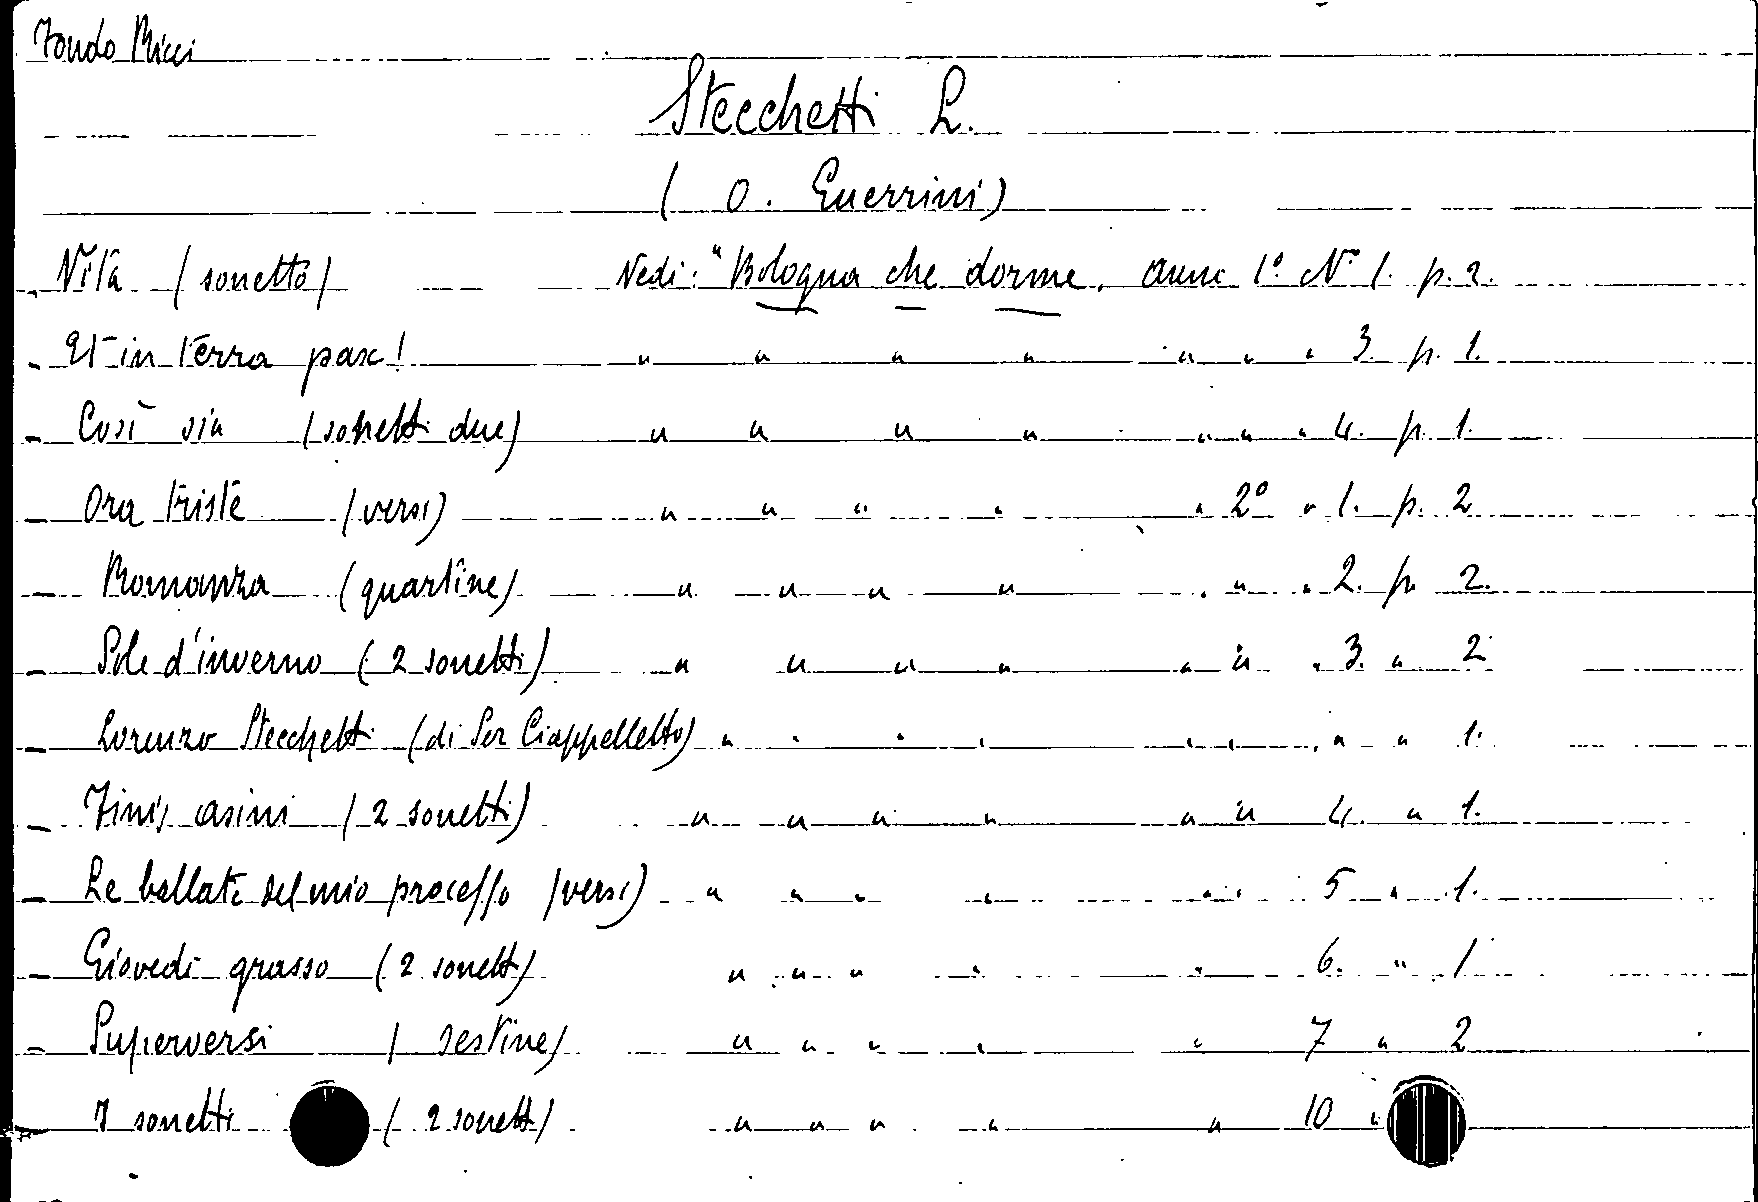 Fondo Ricci
Stecchetti L.
( O. Guerrini)
- Vita (sonetto) Vedi: "Bologna che dorme. Anno 1° N° 1. p. 2.
- Et in terra pax! " " " " " " " 3. p. 1.
- Così sia (sonetti due) " " " " " " " 4. p. 1.
- Ora triste (versi) " " " " " 2° " 1. p. 2
- Romanza (quartine) " " " " " " " 2. p. 2.
- Sole d'inverno ( 2 sonetti) " " " " " " " 3. " 2
- Lorenzo Stecchetti (di Ser Ciappelletto) " " " " " " " " " 1.
- Finis asini ( 2 sonetti) " " " " " " 4. " 1.
- Le ballate del mio processo (versi) " " " " " " 5 " 1.
- Giovedì grasso ( 2 sonetti) " " " " " 6. " 1
- Superversi ( sestine) " " " " " 7 " 2
- I sonetti ( 2 sonetti) " " " " " 10 "